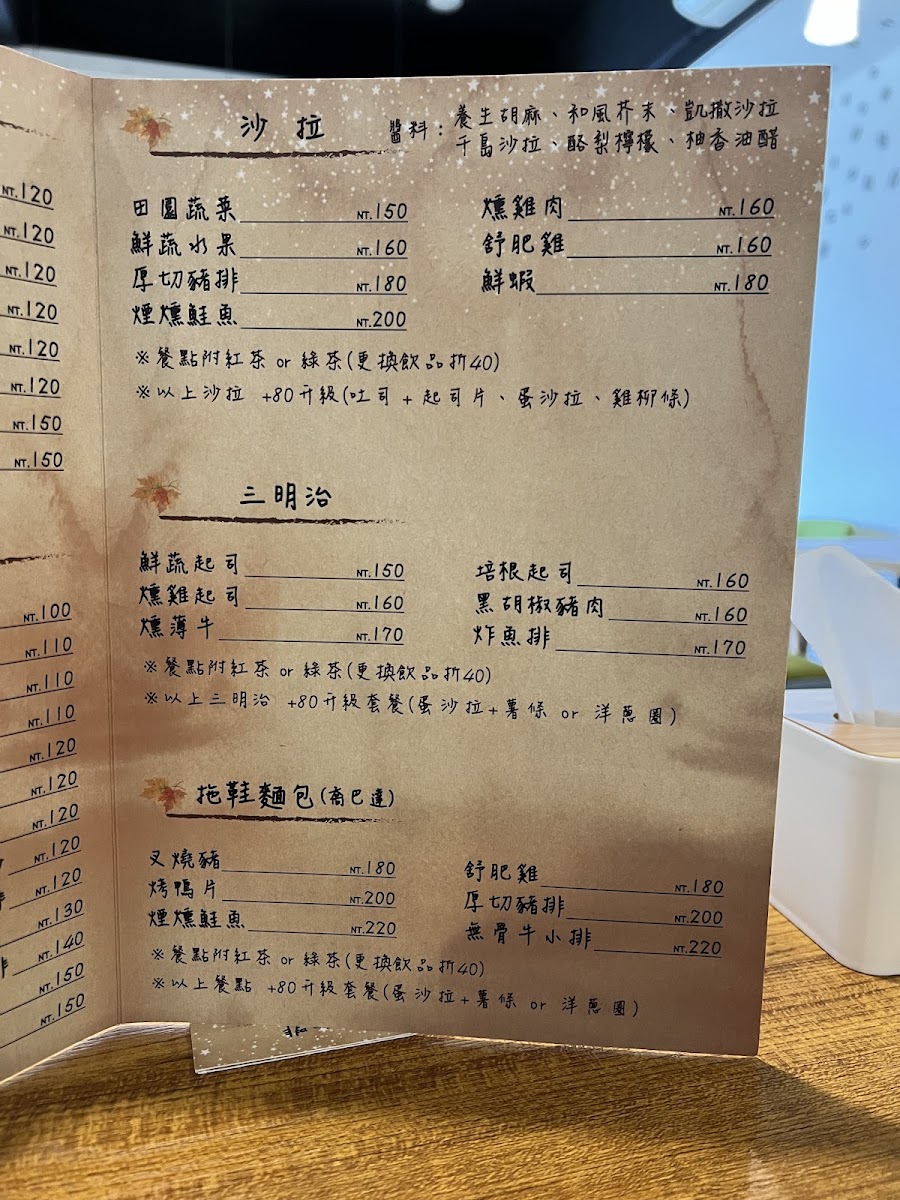 NT.120
NT.120
NT.120
NT.120
NT.120
NT.120
NT.150
NT.150
NT.100
NT.110
NT.110
NT.110
NT.120
NT.120
NT.120
NT.120
NT.120
NT.130
NT.140
NT.150
NT.150
沙拉
醬料：養生胡麻、和風芥末、凱撒沙拉
千島沙拉、酪梨檸檬、柚香油醋
田園蔬菜 NT.150
鮮蔬水果 NT.160
厚切豬排 NT.180
煙燻鮭魚 NT.200
燻雞肉 NT.160
舒肥雞 NT.160
鮮蝦 NT.180
※餐點附紅茶 or 綠茶(更換飲品折40)
※以上沙拉 +80升級(吐司 + 起司片、蛋沙拉、雞柳條)
三明治
鮮蔬起司 NT.150
燻雞起司 NT.160
燻薄牛 NT.170
培根起司 NT.160
黑胡椒豬肉 NT.160
炸魚排 NT.170
※餐點附紅茶 or 綠茶(更換飲品折40)
※以上三明治 +80升級套餐(蛋沙拉+薯條 or 洋蔥圈)
拖鞋麵包(喬巴達)
叉燒豬 NT.180
烤鴨片 NT.200
煙燻鮭魚 NT.220
舒肥雞 NT.180
厚切豬排 NT.200
無骨牛小排 NT.220
※餐點附紅茶 or 綠茶(更換飲品折40)
※以上餐點 +80升級套餐(蛋沙拉+薯條 or 洋蔥圈)